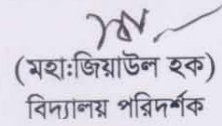 (মহাঃজিয়াউল হক)
বিদ্যালয় পরিদর্শক